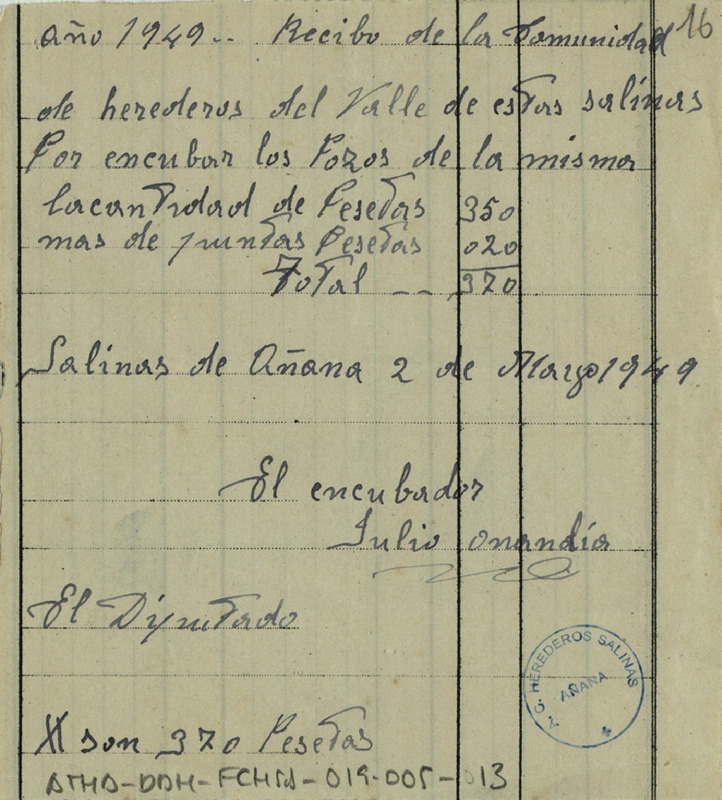 16
año 1949.. Recibo de la Comunidad
de herederos del Valle de estas salinas
Por encubar los Pozos de la misma
la cantidad de Pesetas 350
mas de puntas Pesetas 020
Total -- 370
Salinas de Añana 2 de Marzo 1949
El encubador
Julio onandía
El Diputado
A. C. HEREDEROS SALINAS
AÑANA
son 370 Pesetas
ATHA-DAH-FCHSA-019-005-013